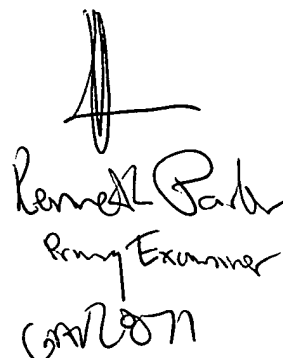 Kenneth Parker
Primary Examiner
GAU 2871